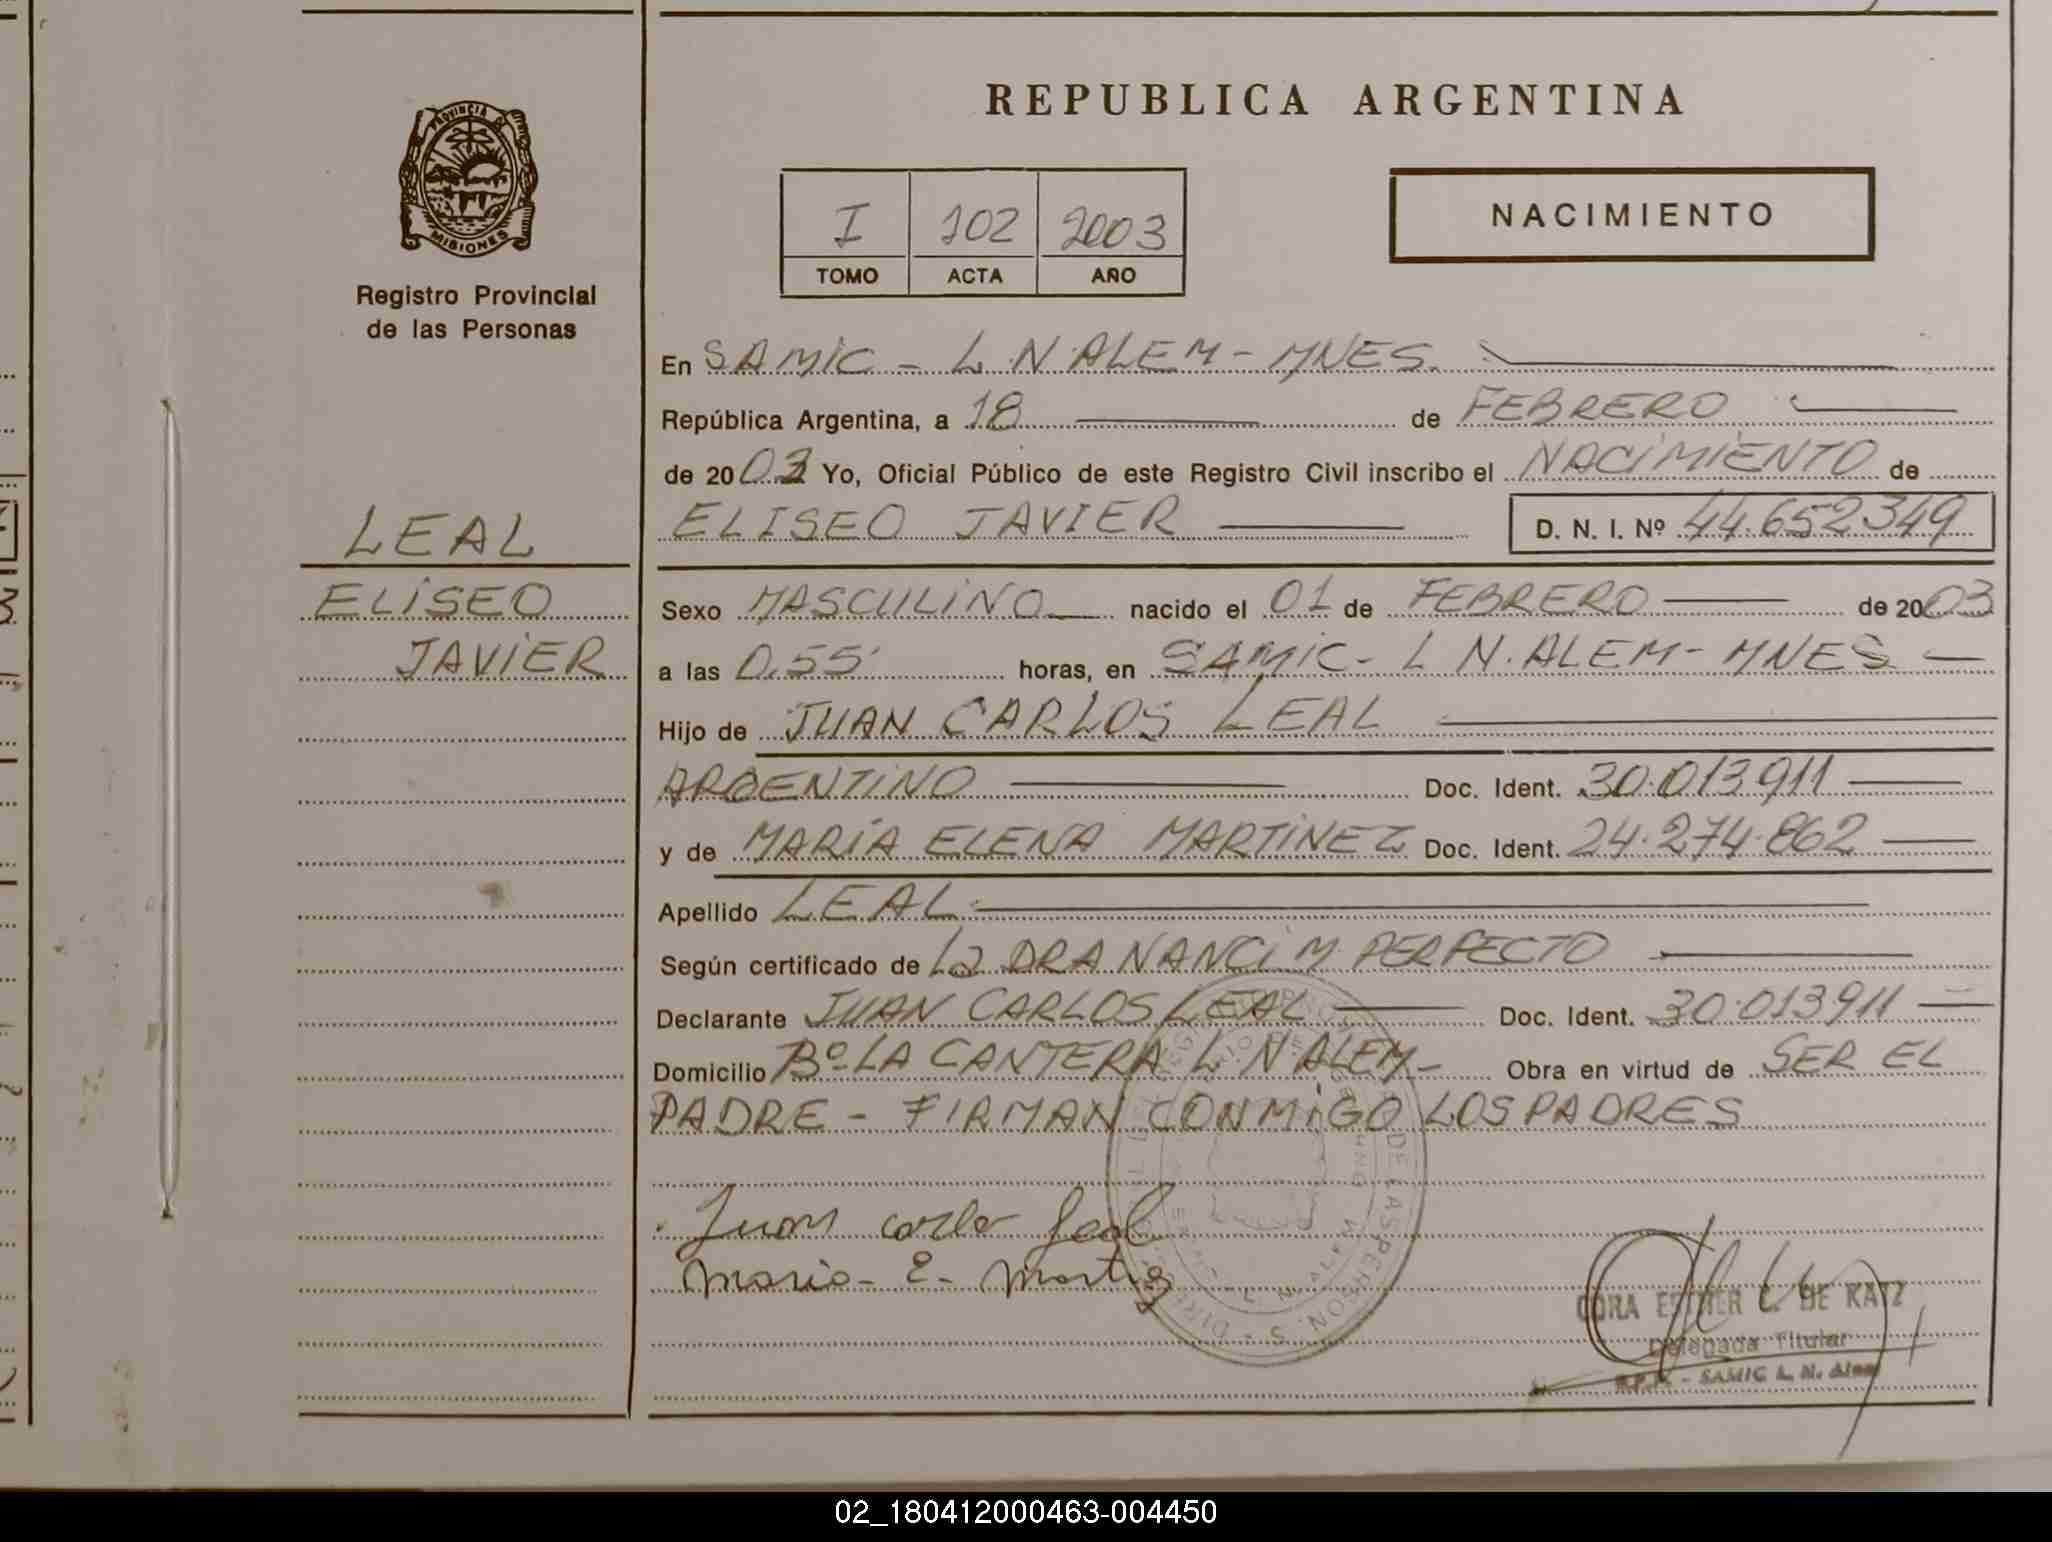 REPUBLICA ARGENTINA
PROVINCIA DE
MISIONES
Registro Provincial
de las Personas
I 102 2003
TOMO ACTA AÑO
NACIMIENTO
En SAMIC - L. N. ALEM - MNES.
República Argentina, a 18 de FEBRERO
de 2003 Yo, Oficial Público de este Registro Civil inscribo el NACIMIENTO de
ELISEO JAVIER D. N. I. Nº 44.652349
LEAL
ELISEO
JAVIER
Sexo MASCULINO nacido el 01 de FEBRERO de 2003
a las 0.55' horas, en SAMIC - L N. ALEM - MNES
Hijo de JUAN CARLOS LEAL
ARGENTINO Doc. Ident. 30.013911
y de MARIA ELENA MARTINEZ Doc. Ident. 24.274.862
Apellido LEAL
Según certificado de La DRA NANCI M. PERFECTO
Declarante JUAN CARLOS LEAL Doc. Ident. 30.013911
Domicilio Bº LA CANTERA L. N ALEM - Obra en virtud de SER EL
PADRE - FIRMAN CONMIGO LOS PADRES
Juan carlo Leal
Maria - E - Martinez
CORA ESTHER C. DE KATZ
Delegada Titular
R.P.P. - SAMIC L. N. Alem
02_180412000463-004450